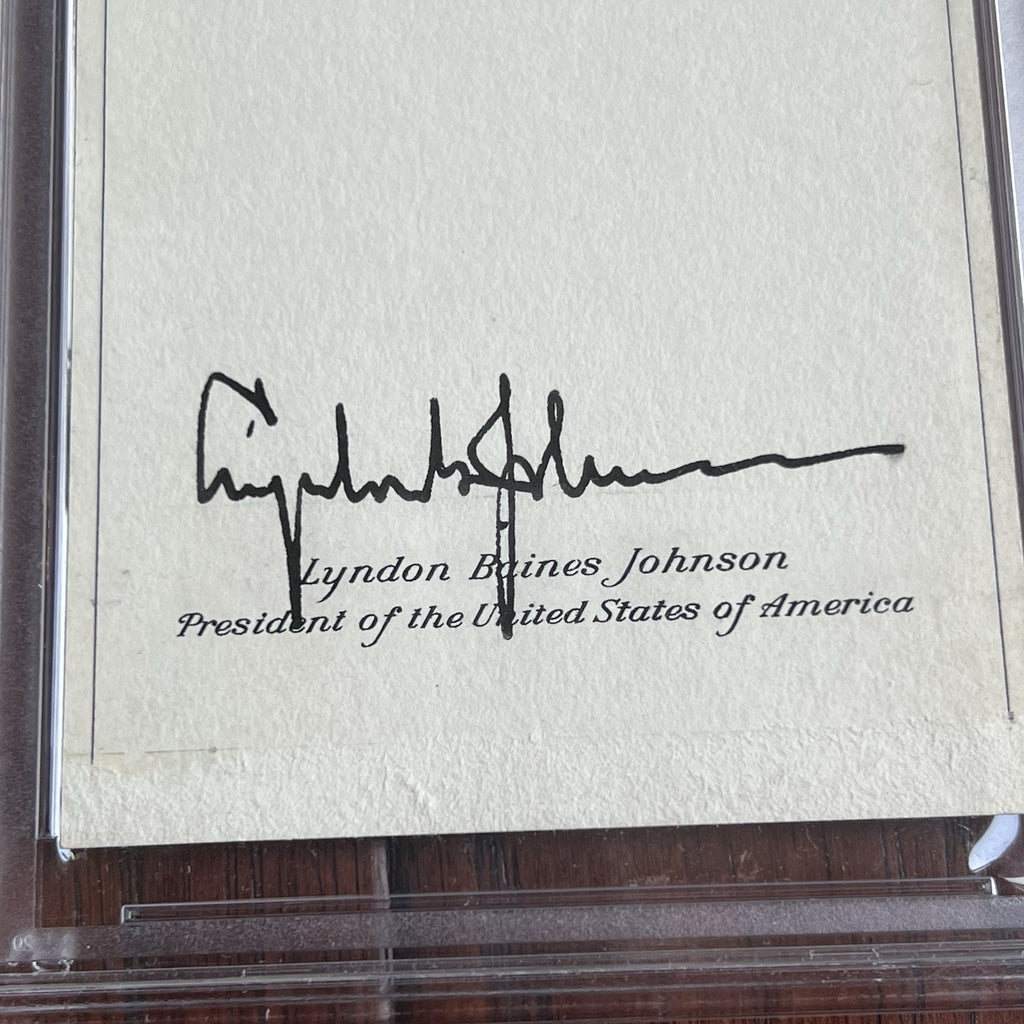 Lyndon B Johnson
Lyndon Baines Johnson
President of the United States of America